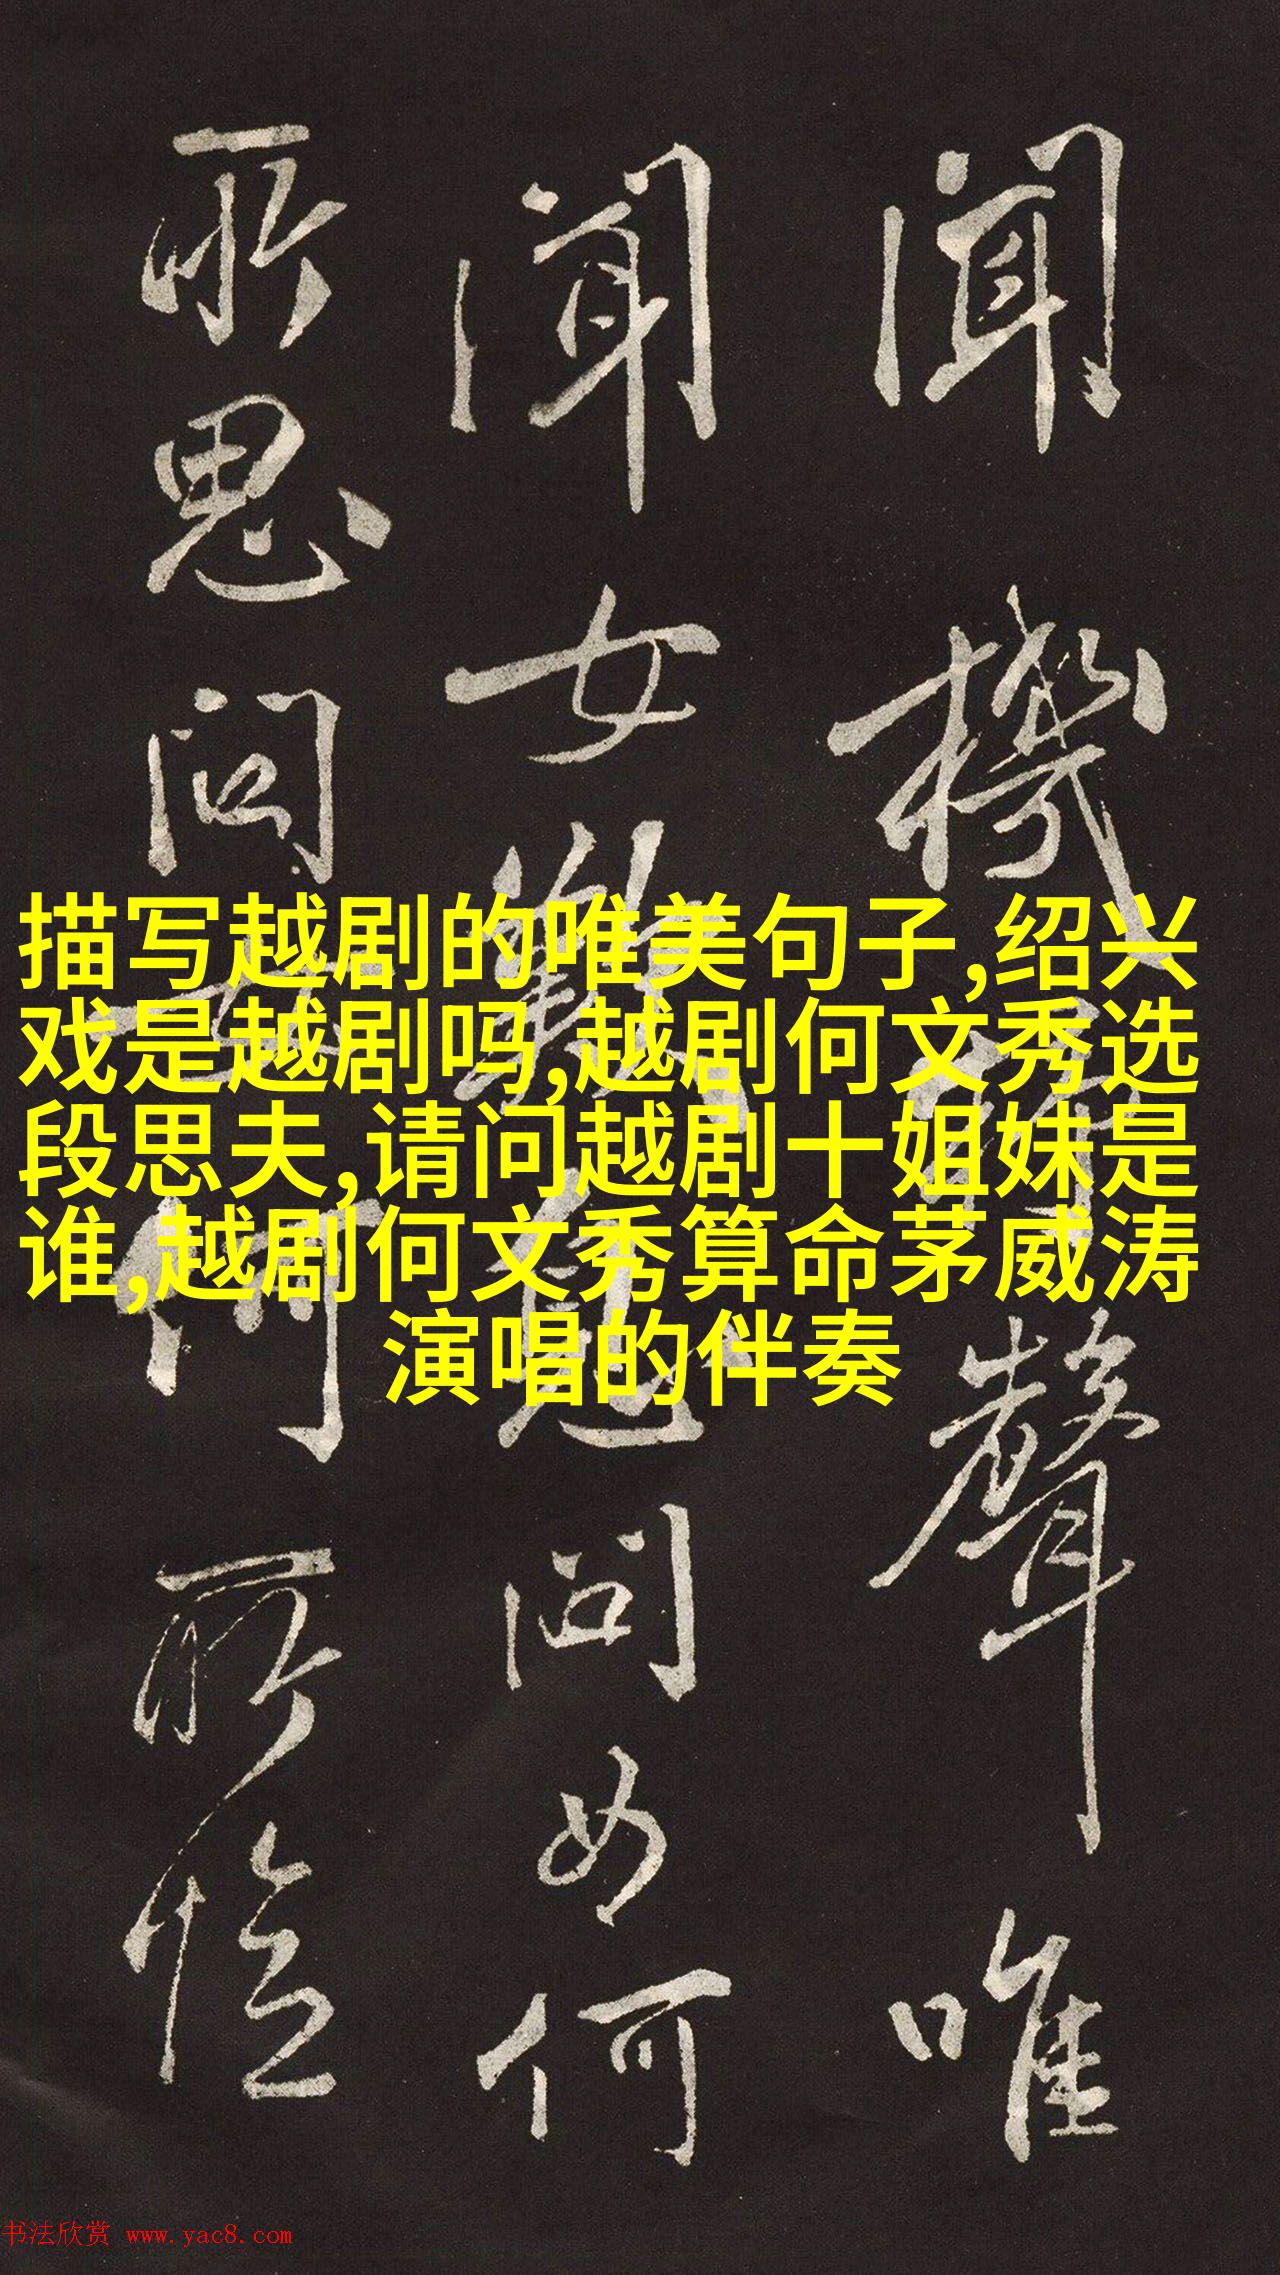 聞機杼聲唯
聞女歎息問女何
所思問女何所憶
描写越剧的唯美句子,绍兴
戏是越剧吗,越剧何文秀选
段思夫,请问越剧十姐妹是
谁,越剧何文秀算命茅威涛
演唱的伴奏
书法欣赏 www.yac8.com